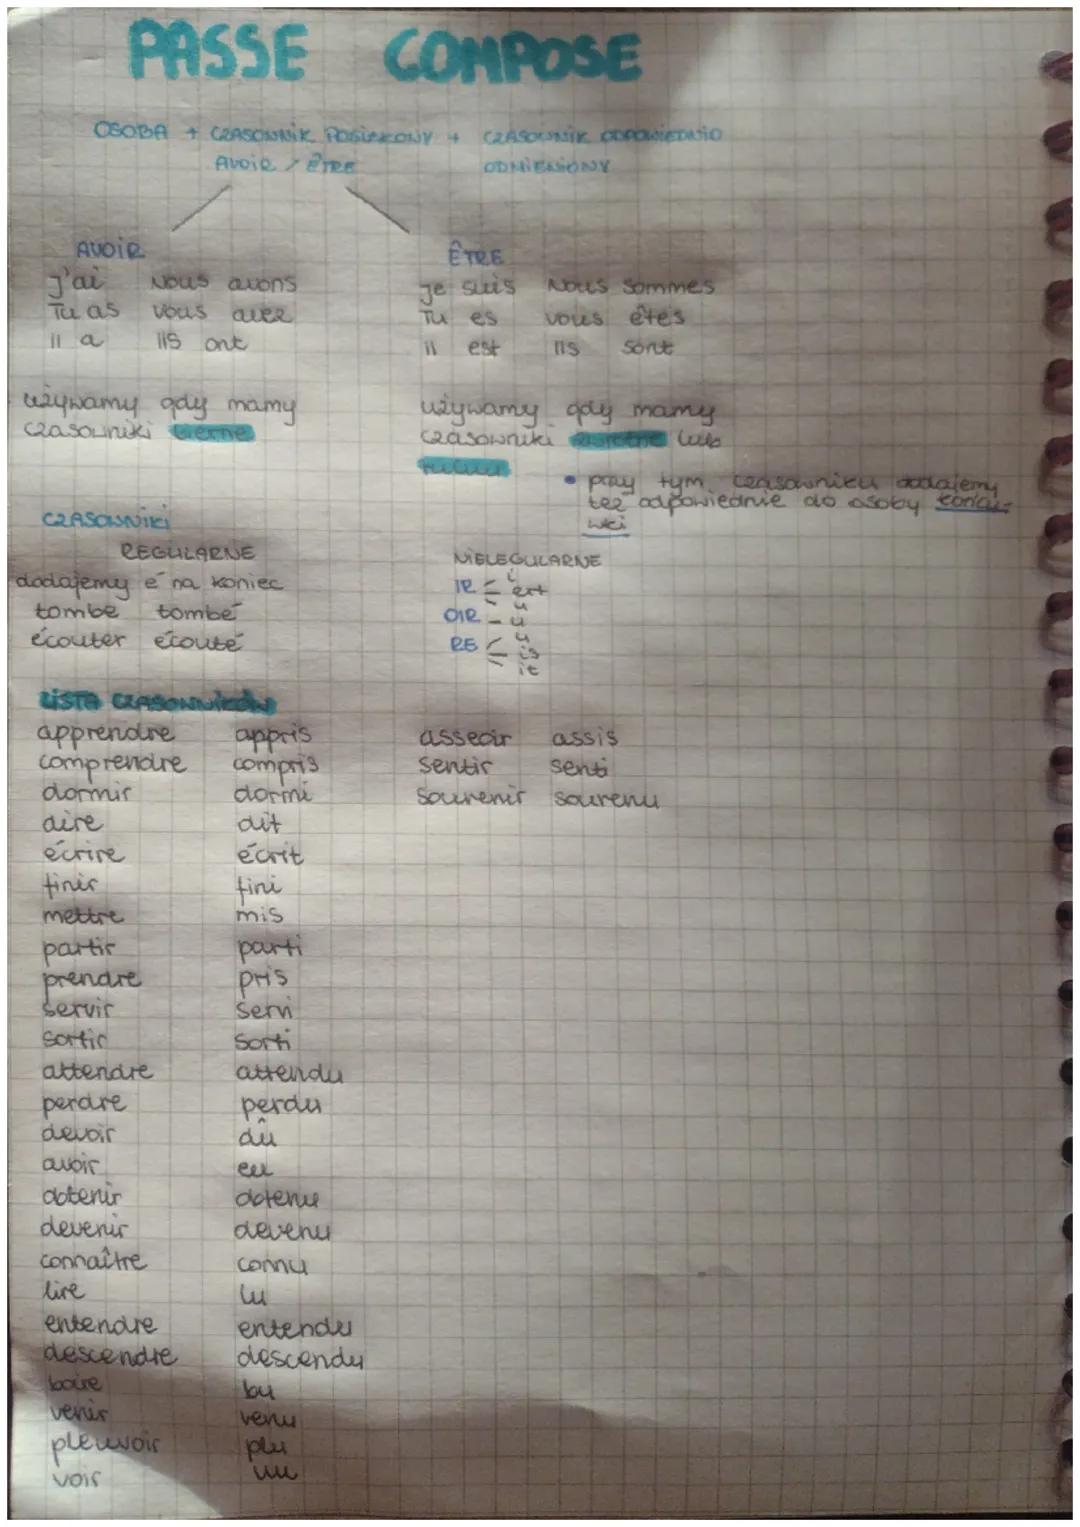 PASSE COMPOSE
OSOBA + CZASOWNIK POSIŁKOWY + CZASOWNIK ODPOWIEDNIO
AVOIR / ÊTRE ODMIENIONY
AVOIR
J'ai Nous avons
Tu as vous avez
il a ils ont
używamy gdy mamy
czasowniki bierne
ÊTRE
je suis Nous sommes
Tu es vous êtes
il est ils sont
używamy gdy mamy
czasowniki zwrotne lub
ruchu
• przy tym czasowniku dodajemy
też odpowiednie do osoby końców-
wki
CZASOWNIKI
REGULARNE
dodajemy é na koniec
tombe tombé
écouter écouté
NIELEGULARNE
IR i
ert
u
OIR - u
RE u
is
it
LISTA CZASOWNIKÓW
apprendre appris
comprendre compris
dormir dormi
dire dit
écrire écrit
finir fini
mettre mis
partir parti
prendre pris
servir servi
sortir sorti
attendre attendu
perdre perdu
devoir dû
avoir eu
obtenir obtenu
devenir devenu
connaître connu
lire lu
entendre entendu
descendre descendu
boire bu
venir venu
pleuvoir plu
voir vu
asseoir assis
sentir senti
souvenir souvenu